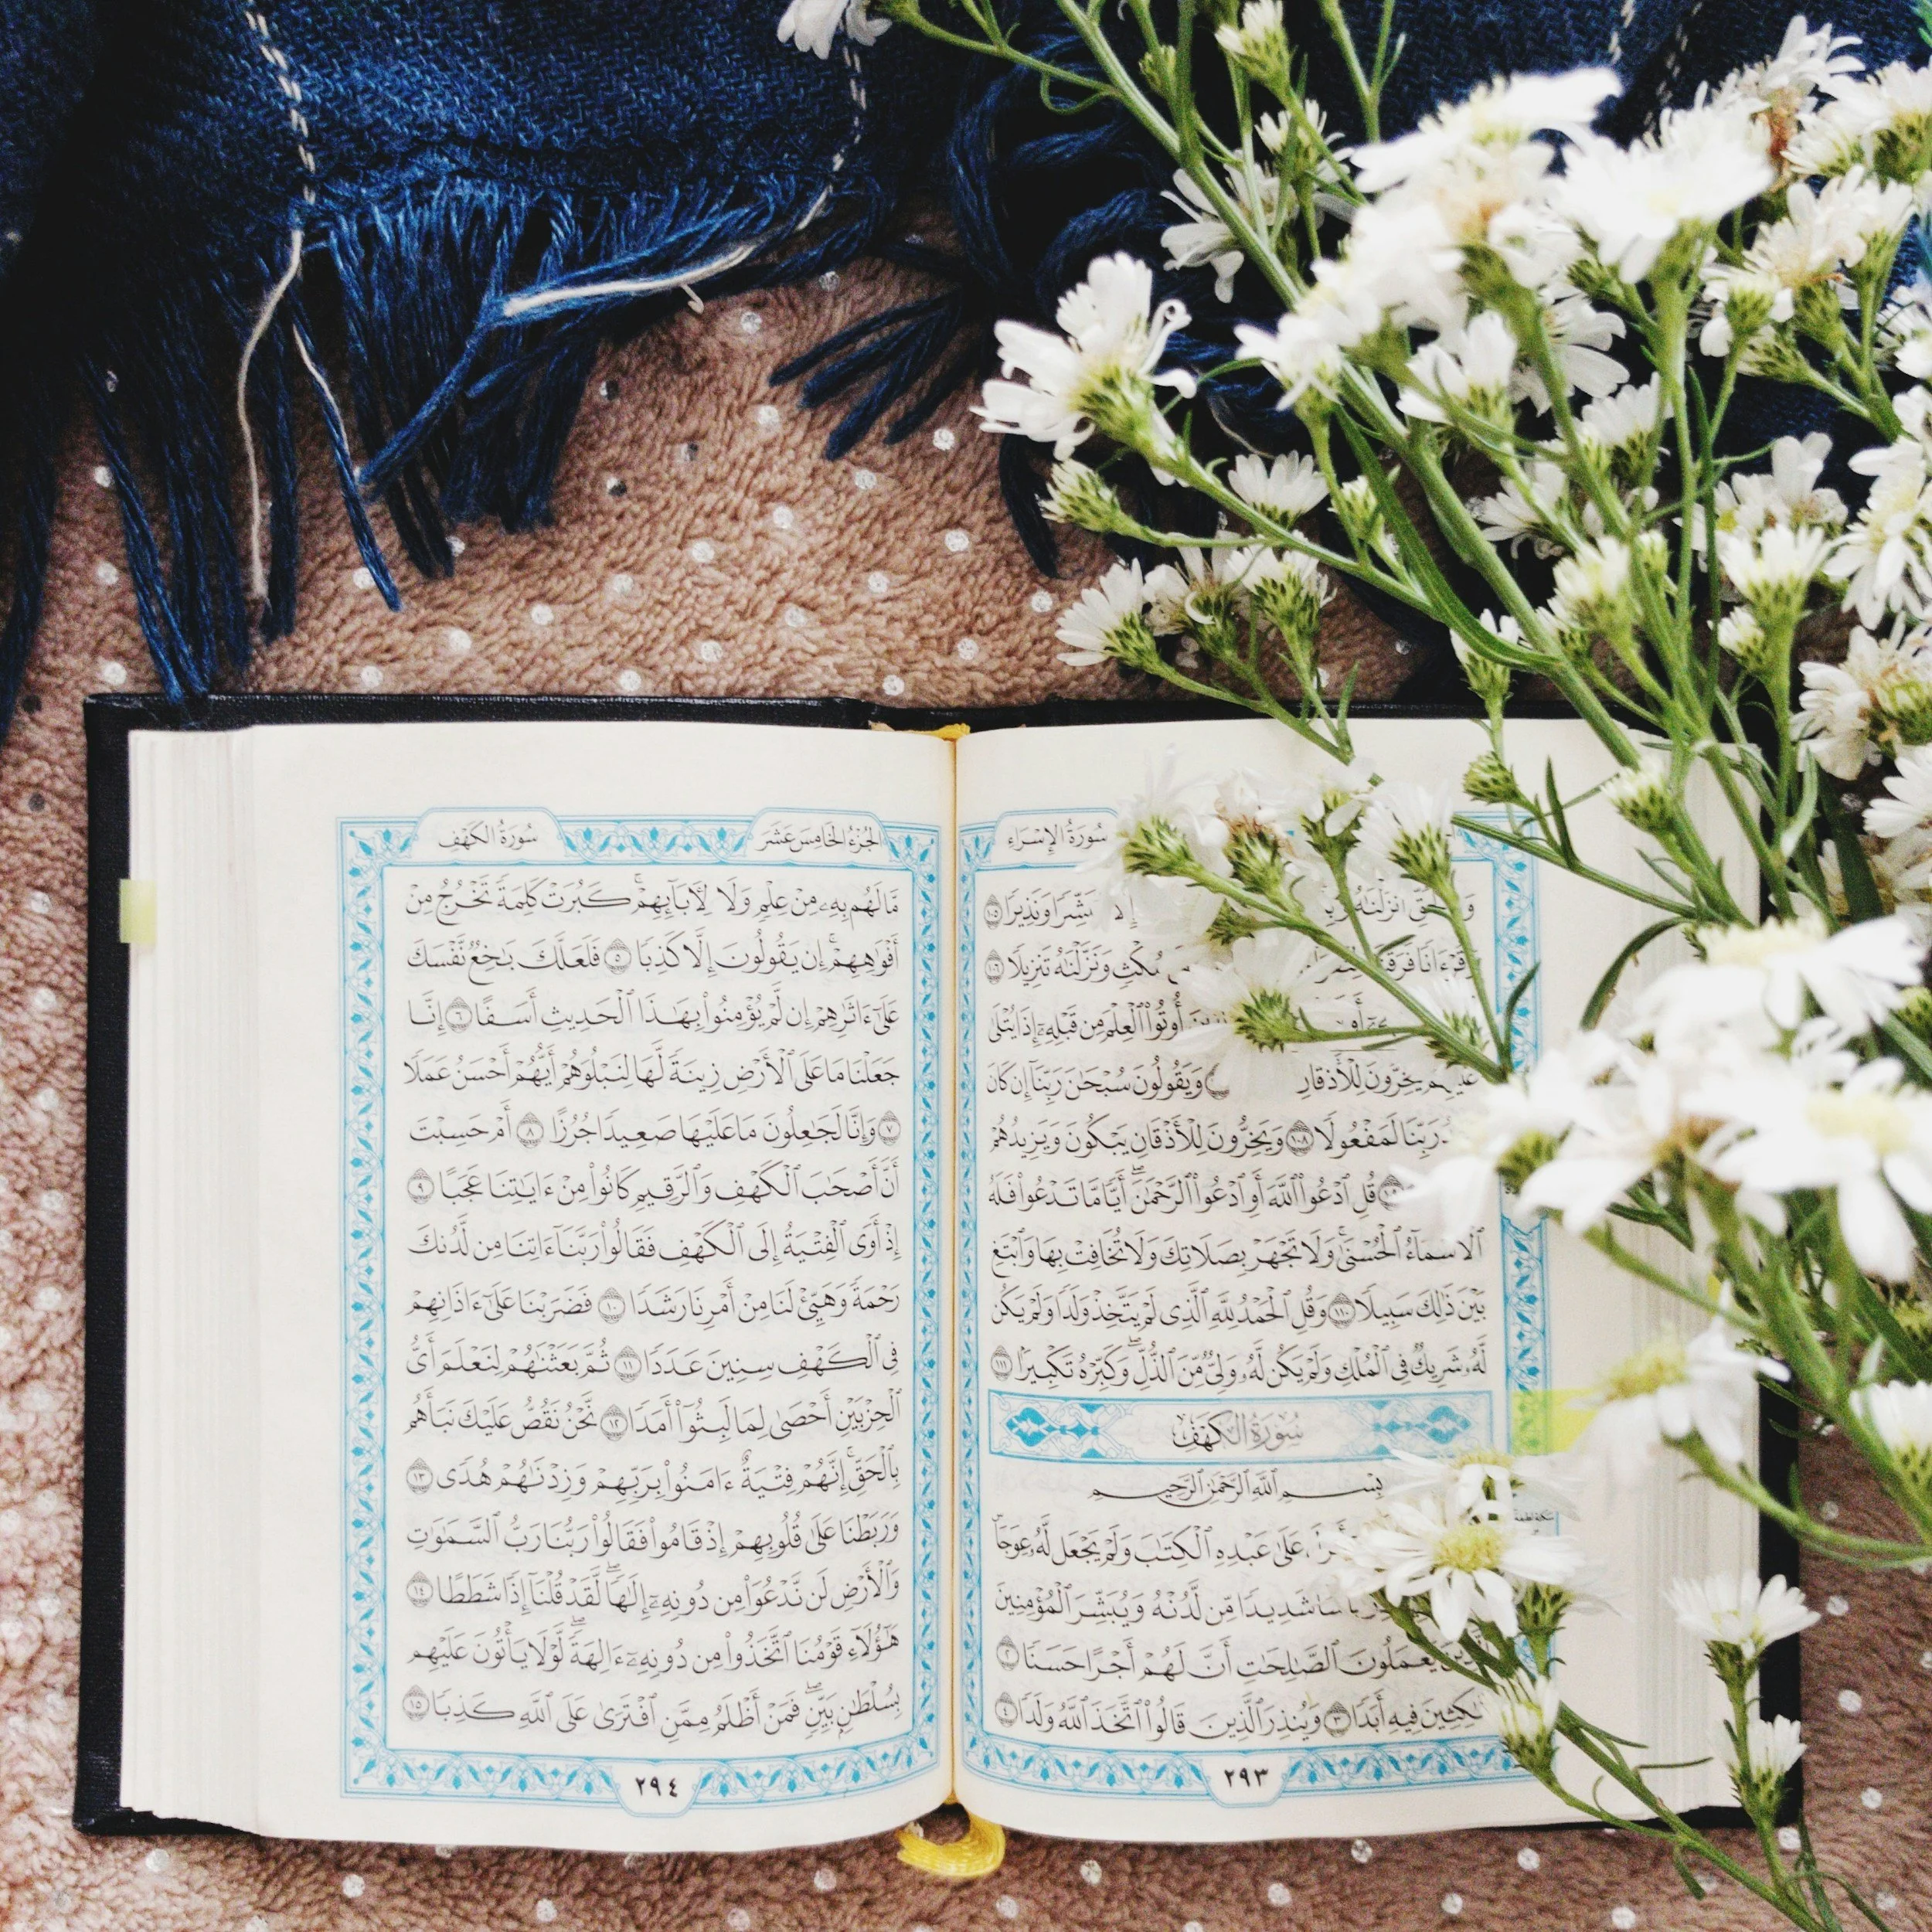 سُورَةُ الإِسْرَاءِ
أَنزَلْنَٰهُ وَنَذِيرًا ١٠٥
وَنَزَّلْنَٰهُ تَنزِيلًا ١٠٦
أُوتُوا۟ ٱلْعِلْمَ مِن قَبْلِهِۦٓ إِذَا يُتْلَىٰ
يَخِرُّونَ لِلْأَذْقَانِ وَيَقُولُونَ سُبْحَٰنَ رَبِّنَآ إِن كَانَ
رَبِّنَا لَمَفْعُولًا ١٠٨ وَيَخِرُّونَ لِلْأَذْقَانِ يَبْكُونَ وَيَزِيدُهُمْ
قُلِ ٱدْعُوا۟ ٱللَّهَ أَوِ ٱدْعُوا۟ ٱلرَّحْمَٰنَ ۖ أَيًّا مَّا تَدْعُوا۟ فَلَهُ
ٱلْأَسْمَآءُ ٱلْحُسْنَىٰ ۚ وَلَا تَجْهَرْ بِصَلَاتِكَ وَلَا تُخَافِتْ بِهَا وَٱبْتَغِ
بَيْنَ ذَٰلِكَ سَبِيلًا ١١٠ وَقُلِ ٱلْحَمْدُ لِلَّهِ ٱلَّذِى لَمْ يَتَّخِذْ وَلَدًا وَلَمْ يَكُن
لَّهُۥ شَرِيكٌ فِى ٱلْمُلْكِ وَلَمْ يَكُن لَّهُۥ وَلِىٌّ مِّنَ ٱلذُّلِّ ۖ وَكَبِّرْهُ تَكْبِيرًۢا ١١١
سُورَةُ الكَهْفِ
بِسْمِ ٱللَّهِ ٱلرَّحْمَٰنِ ٱلرَّحِيمِ
عَلَىٰ عَبْدِهِ ٱلْكِتَٰبَ وَلَمْ يَجْعَل لَّهُۥ عِوَجَا ۜ
شَدِيدًا مِّن لَّدُنْهُ وَيُبَشِّرَ ٱلْمُؤْمِنِينَ
يَعْمَلُونَ ٱلصَّٰلِحَٰتِ أَنَّ لَهُمْ أَجْرًا حَسَنًا ٢
مَّٰكِثِينَ فِيهِ أَبَدًا ٣ وَيُنذِرَ ٱلَّذِينَ قَالُوا۟ ٱتَّخَذَ ٱللَّهُ وَلَدًا ٤
٢٩٣
الجُزْءُ الخَامِسَ عَشَرَ
سُورَةُ الكَهْفِ
مَّا لَهُم بِهِۦ مِنْ عِلْمٍ وَلَا لِـَٔابَآئِهِمْ ۚ كَبُرَتْ كَلِمَةً تَخْرُجُ مِنْ
أَفْوَٰهِهِمْ ۚ إِن يَقُولُونَ إِلَّا كَذِبًا ٥ فَلَعَلَّكَ بَٰخِعٌ نَّفْسَكَ
عَلَىٰٓ ءَاثَٰرِهِمْ إِن لَّمْ يُؤْمِنُوا۟ بِهَٰذَا ٱلْحَدِيثِ أَسَفًا ٦ إِنَّا
جَعَلْنَا مَا عَلَى ٱلْأَرْضِ زِينَةً لَّهَا لِنَبْلُوَهُمْ أَيُّهُمْ أَحْسَنُ عَمَلًا
٧ وَإِنَّا لَجَٰعِلُونَ مَا عَلَيْهَا صَعِيدًا جُرُزًا ٨ أَمْ حَسِبْتَ
أَنَّ أَصْحَٰبَ ٱلْكَهْفِ وَٱلرَّقِيمِ كَانُوا۟ مِنْ ءَايَٰتِنَا عَجَبًا ٩
إِذْ أَوَى ٱلْفِتْيَةُ إِلَى ٱلْكَهْفِ فَقَالُوا۟ رَبَّنَآ ءَاتِنَا مِن لَّدُنكَ
رَحْمَةً وَهَيِّئْ لَنَا مِنْ أَمْرِنَا رَشَدًا ١٠ فَضَرَبْنَا عَلَىٰٓ ءَاذَانِهِمْ
فِى ٱلْكَهْفِ سِنِينَ عَدَدًا ١١ ثُمَّ بَعَثْنَٰهُمْ لِنَعْلَمَ أَىُّ
ٱلْحِزْبَيْنِ أَحْصَىٰ لِمَا لَبِثُوٓا۟ أَمَدًا ١٢ نَّحْنُ نَقُصُّ عَلَيْكَ نَبَأَهُم
بِٱلْحَقِّ ۚ إِنَّهُمْ فِتْيَةٌ ءَامَنُوا۟ بِرَبِّهِمْ وَزِدْنَٰهُمْ هُدًى ١٣
وَرَبَطْنَا عَلَىٰ قُلُوبِهِمْ إِذْ قَامُوا۟ فَقَالُوا۟ رَبُّنَا رَبُّ ٱلسَّمَٰوَٰتِ
وَٱلْأَرْضِ لَن نَّدْعُوَا۟ مِن دُونِهِۦٓ إِلَٰهًا ۖ لَّقَدْ قُلْنَآ إِذًا شَطَطًا ١٤
هَٰٓؤُلَآءِ قَوْمُنَا ٱتَّخَذُوا۟ مِن دُونِهِۦٓ ءَالِهَةً ۖ لَّوْلَا يَأْتُونَ عَلَيْهِم
بِسُلْطَٰنٍۭ بَيِّنٍ ۖ فَمَنْ أَظْلَمُ مِمَّنِ ٱفْتَرَىٰ عَلَى ٱللَّهِ كَذِبًا ١٥
٢٩٤